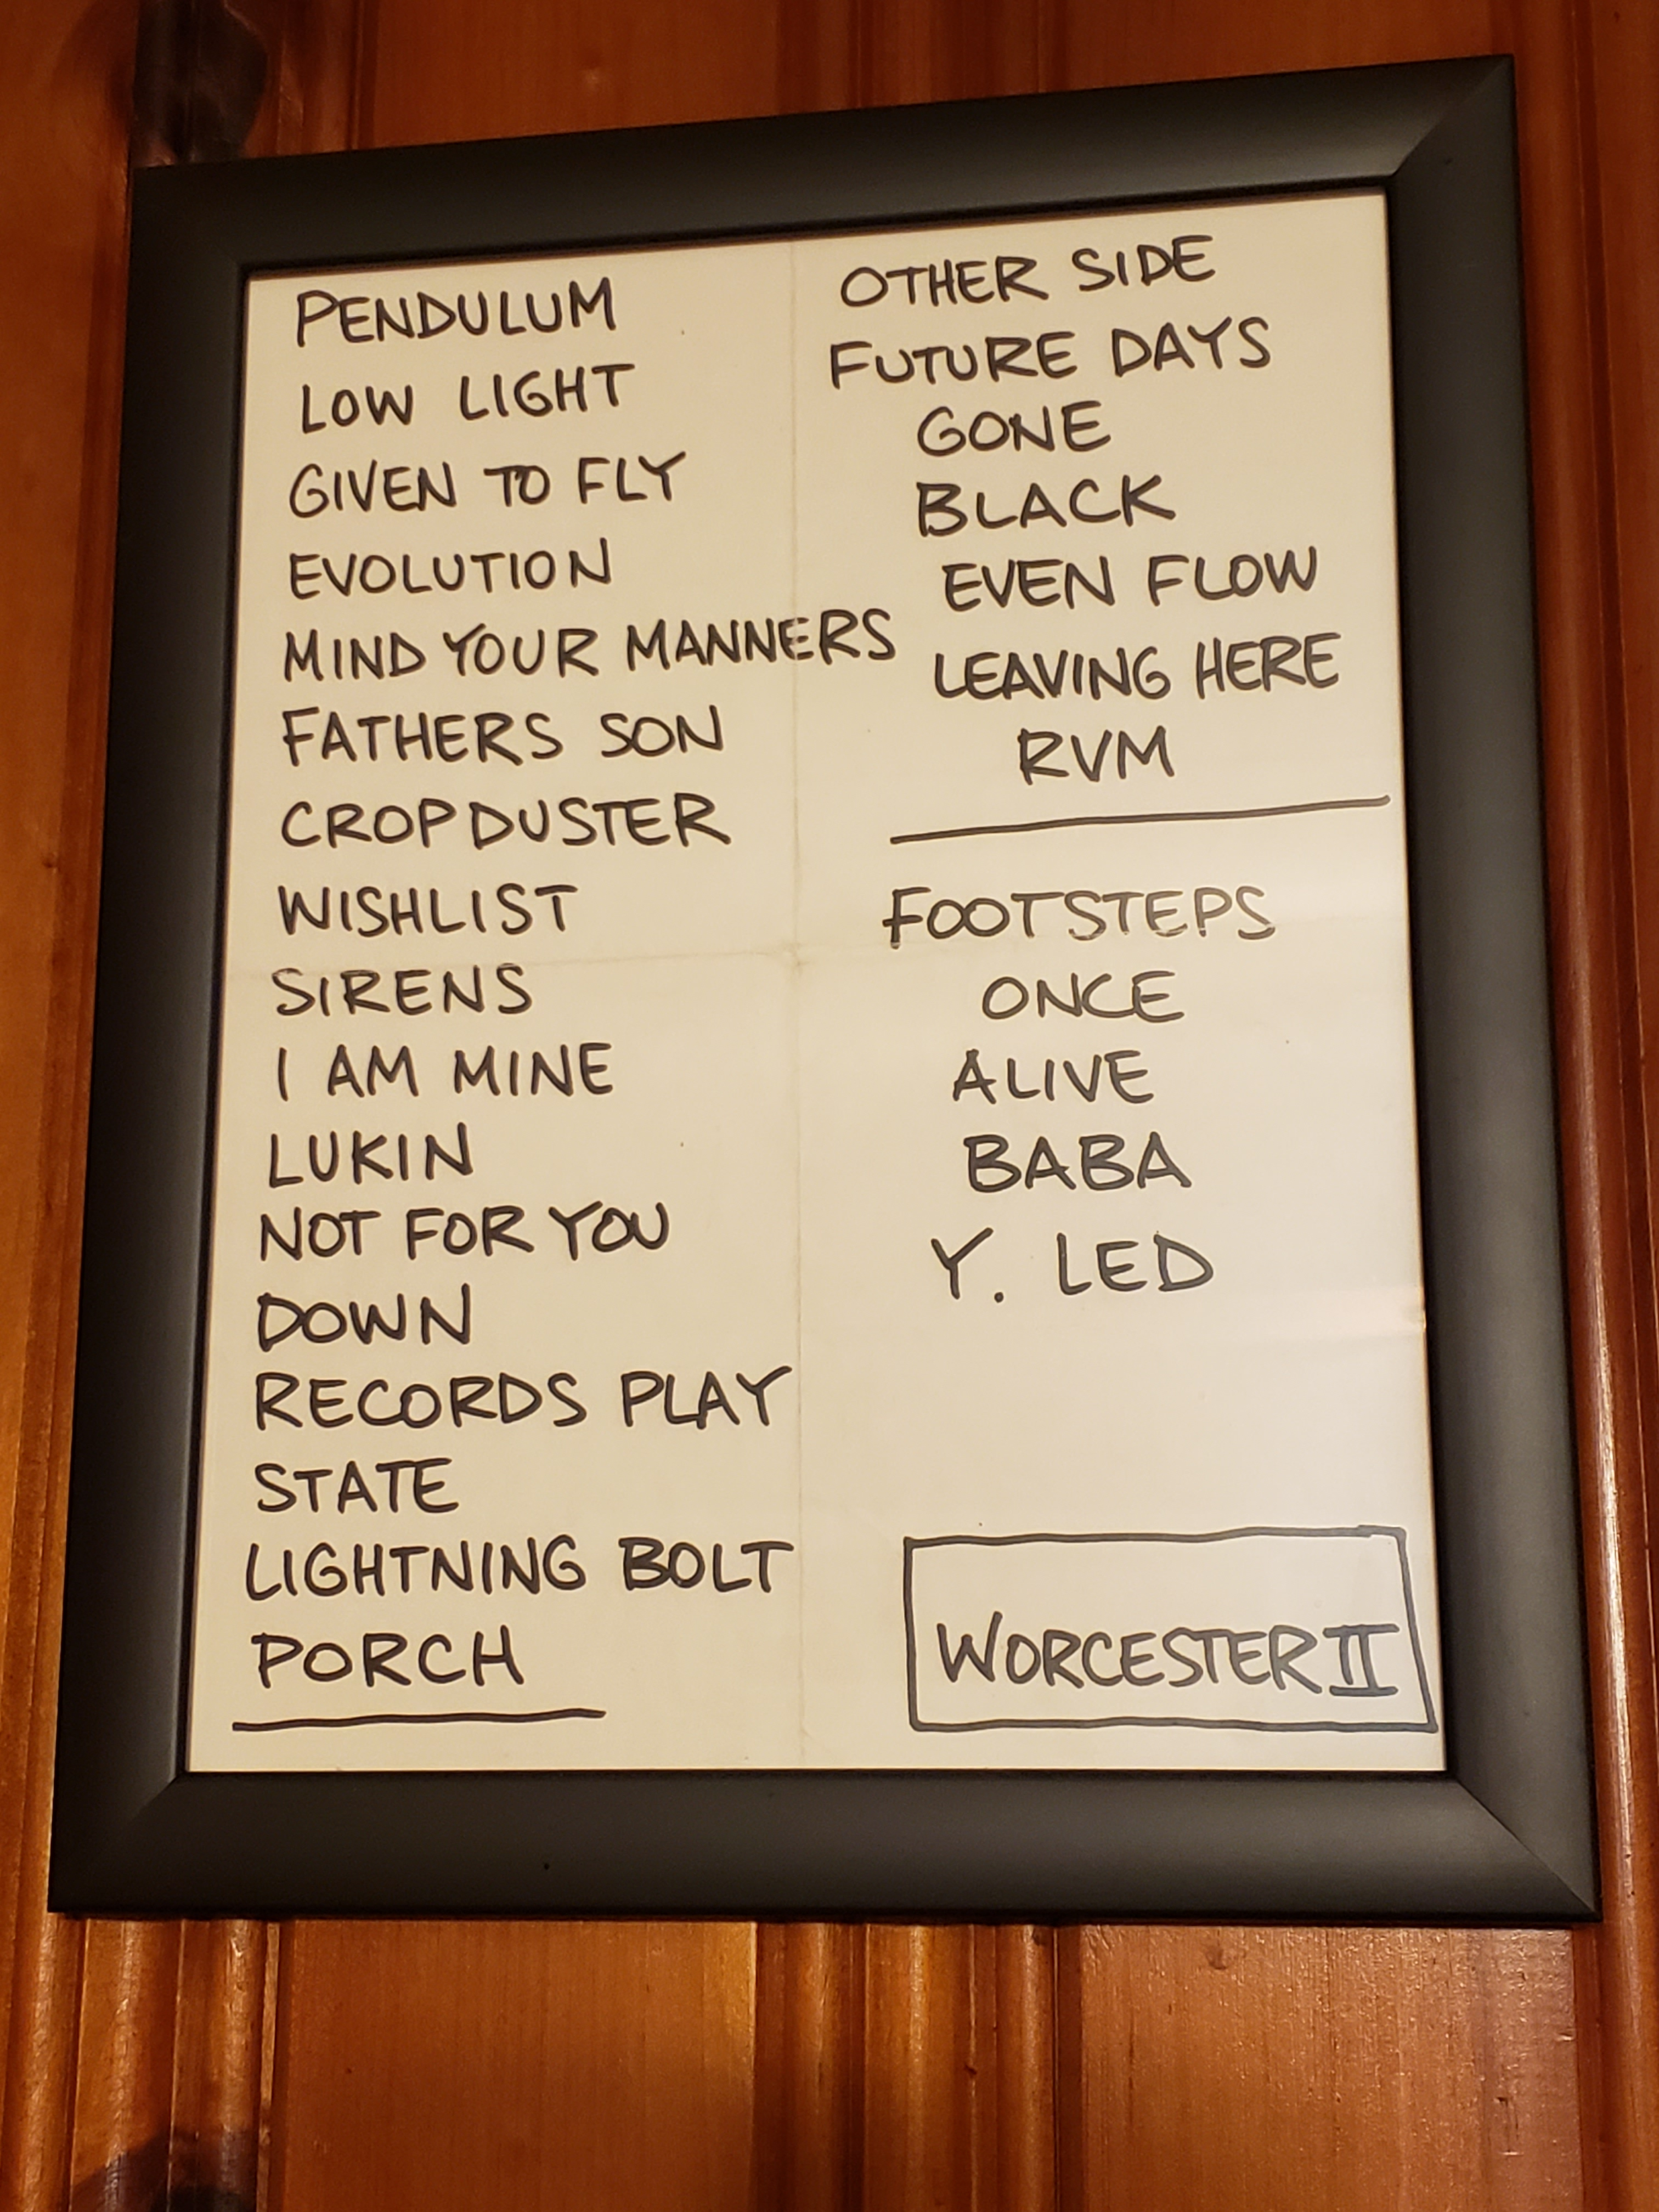 PENDULUM
LOW LIGHT
GIVEN TO FLY
EVOLUTION
MIND YOUR MANNERS
FATHERS SON
CROPDUSTER
WISHLIST
SIRENS
I AM MINE
LUKIN
NOT FOR YOU
DOWN
RECORDS PLAY
STATE
LIGHTNING BOLT
PORCH
OTHER SIDE
FUTURE DAYS
GONE
BLACK
EVEN FLOW
LEAVING HERE
RVM
FOOTSTEPS
ONCE
ALIVE
BABA
Y. LED
WORCESTER II